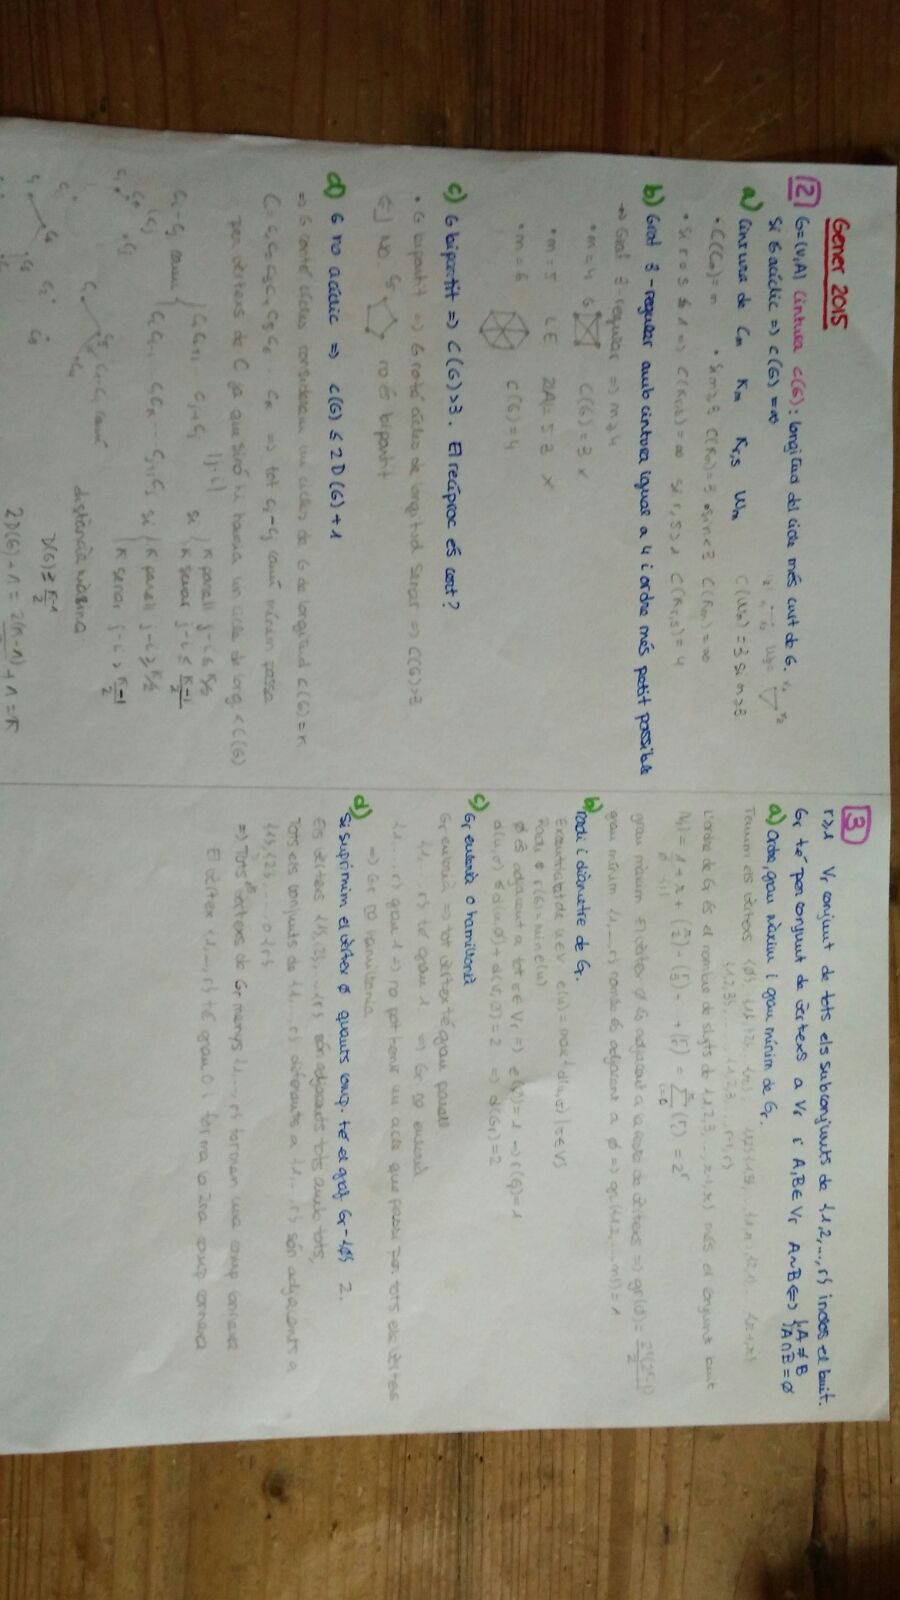 Gener 2015
2 G=(V,A) cintura c(G): longitud del cicle més curt de G.
Si G acíclic ⇒ c(G) = ∞
a) Cintura de Cn Kn Kr,s Wn
• C(Cn) = n • Si n≥3 C(Kn) = 3 si n<3 C(Kn) = ∞ C(Wn) = 3 si n≥3
• Si r o s ≤ 1 ⇒ C(Kr,s) = ∞ si r,s>1 C(Kr,s) = 4
b) Graf 3-regular amb cintura igual a 4 i ordre més petit possible
→ Graf 3-regular ⇒ n≥4
• n=4 G C(G) = 3
• n=5 2|A| = 5·3 x
• n=6 C(G) = 4
c) G bipartit ⇒ C(G)>3. El recíproc és cert?
• G bipartit ⇒ G no té cicles de longitud senar ⇒ C(G)>3
No C5 no és bipartit
d) G no acíclic ⇒ c(G) ≤ 2D(G)+1
⇒ G conté cicles considerem un cicle de G de longitud c(G) = k
⇒ tot ci-cj camí mínim passa
per vèrtexs de C ja que sinó hi hauria un cicle de long < c(G)
ci-cj camí
k parell j-i ≤ k/2
k senar j-i ≤ k-1/2
k parell j-i ≥ k/2
k senar j-i > k-1/2
distància màxima
D(G) ≥ k-1/2
2D(G)+1 = 2(k-1)/2+1 = k
3
r≥1 Vr conjunt de tots els subconjunts de {1,2,...,r} inclòs el buit.
Gr té per conjunt de vèrtexs a Vr i A,B∈Vr A~B ⇔ { A≠B
A∩B=∅
a) Ordre, grau màxim i grau mínim de Gr.
Tenim els vèrtexs
L'ordre de Gr és el nombre de
més el conjunt buit
= 2^r
grau màxim El vèrtex ∅ és adjacent a la resta de vèrtexs ⇒
grau mínim {1,...,r} només és adjacent a ∅ ⇒
b) Radi i diàmetre de Gr.
Excentricitat de u∈V e(u) = max{d(u,v)|v∈V}
Radi r(G) = min e(u)
∅ és adjacent a tot v∈Vr ⇒ e(∅)=1 → r(G)=1
d(u,v) ≤ d(u,∅)+d(v,∅)=2 ⇒ d(Gr)=2
c) Gr eulerià o hamiltonià
Gr eulerià ⇒ tot vèrtex té grau parell
{1,...,r} té grau 1 ⇒ Gr no eulerià
{1,...,r} grau 1 ⇒ no pot haver un cicle que passi per tots els vèrtexs
⇒ Gr no hamiltonià
d) Si suprimim el vèrtex ∅ quants comp. té el graf Gr-{∅} 2.
Els vèrtexs {1},{2},...,{r} són adjacents tots amb tots,
Tots els conjunts de {1,...,r} diferents a {1,...,r} són adjacents a
{1},{2},... o {r}
⇒ Tots els vèrtexs de Gr menys {1,...,r} formen una comp connexa
El vèrtex {1,...,r} té grau 0 i forma la 2na comp connexa